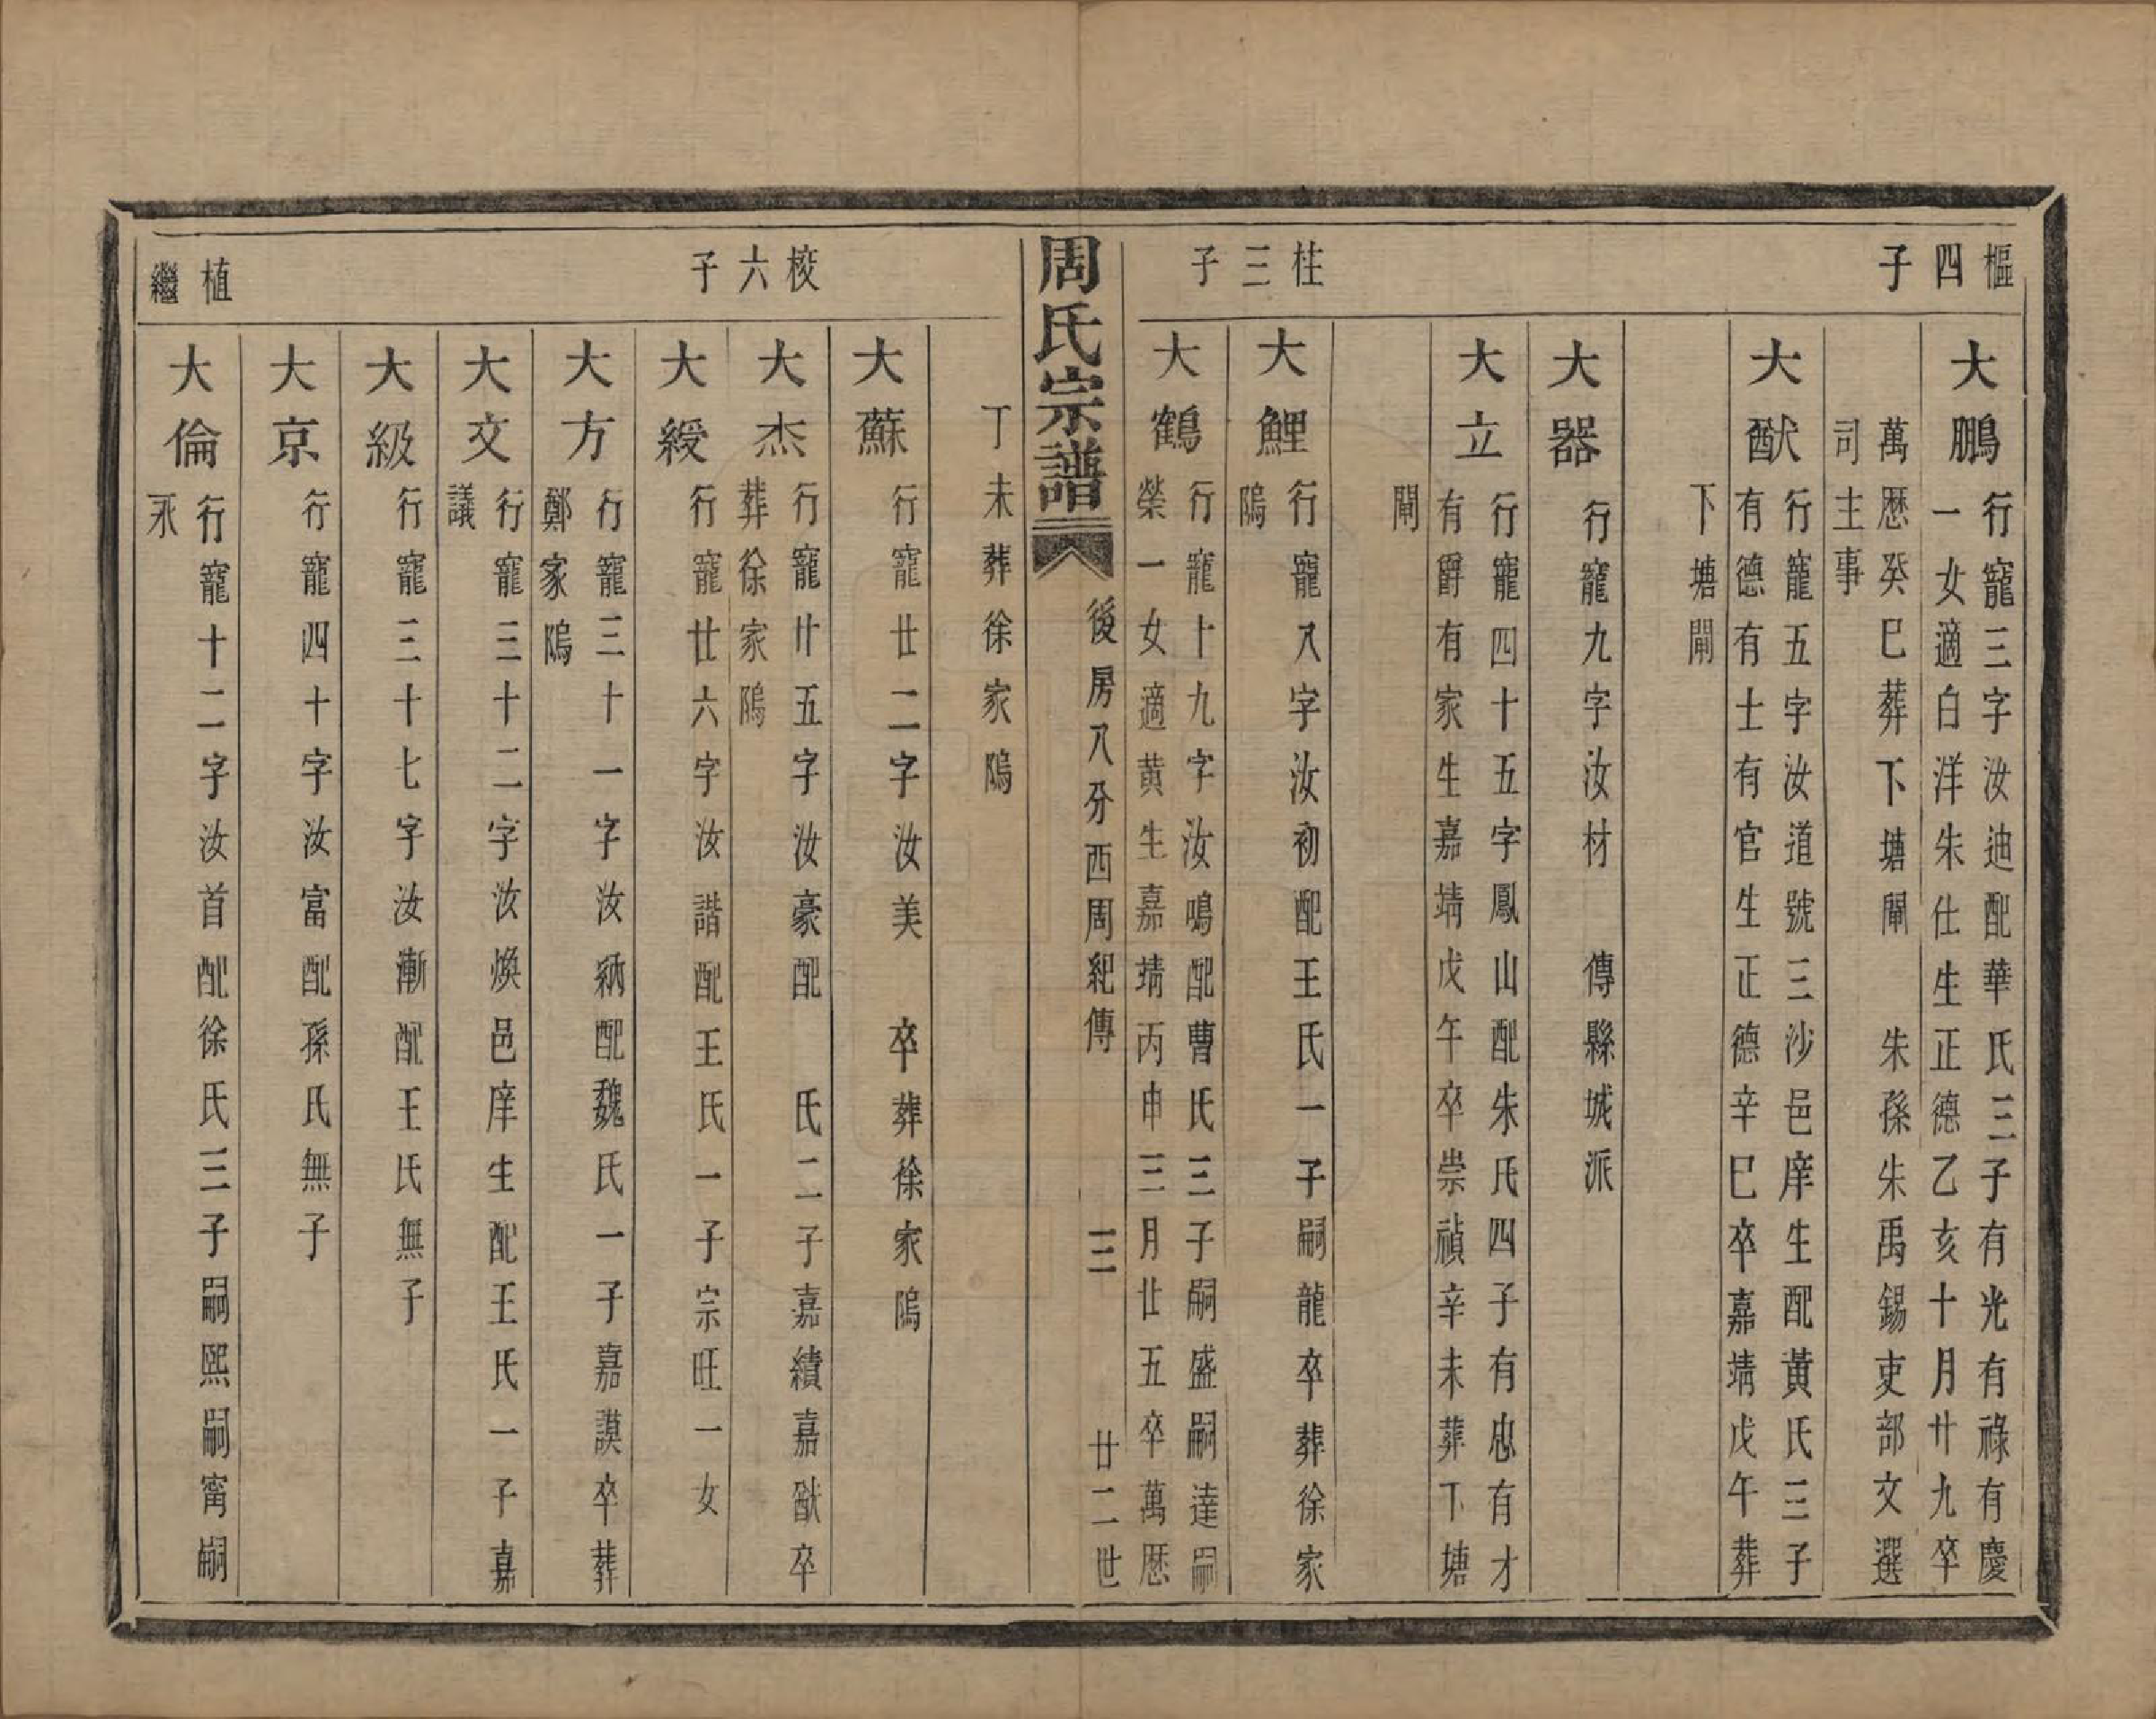 樞四子
大鵬
行寵三字汝迪配華氏三子有光有祿有慶
一女適白洋朱仕生正德乙亥十月廿九卒
萬歷癸巳葬下塘閘 朱孫朱禹錫吏部文選
司主事
大猷
行寵五字汝道號三沙邑庠生配黃氏三子
有德有士有官生正德辛巳卒嘉靖戊午葬
下塘閘
大器
行寵九字汝材 傳縣城派
大立
行寵四十五字鳳山配朱氏四子有忠有才
有爵有家生嘉靖戊午卒崇禎辛未葬下塘
閘
柱三子
大鯉
行寵八字汝初配王氏一子嗣龍卒葬徐家
隖
大鶴
行寵十九字汝鳴配曹氏三子嗣盛嗣達嗣
榮一女適黃生嘉靖丙申三月廿五卒萬歷
周氏宗譜
後房八分西周紀傳 三 廿二世
丁未葬徐家隖
大蘇
行寵廿二字汝美 卒葬徐家隖
校六子
大杰
行寵廿五字汝豪配 氏二子嘉績嘉猷卒
葬徐家隖
大綬
行寵廿六字汝諧配王氏一子宗旺一女
大方
行寵三十一字汝納配魏氏一子嘉謨卒葬
鄭家隖
大文
行寵三十二字汝煥邑庠生配王氏一子嘉
議
大級
行寵三十七字汝漸配王氏無子
大京
行寵四十字汝富配孫氏無子
植繼
大倫
行寵十二字汝首配徐氏三子嗣熙嗣甯嗣
永